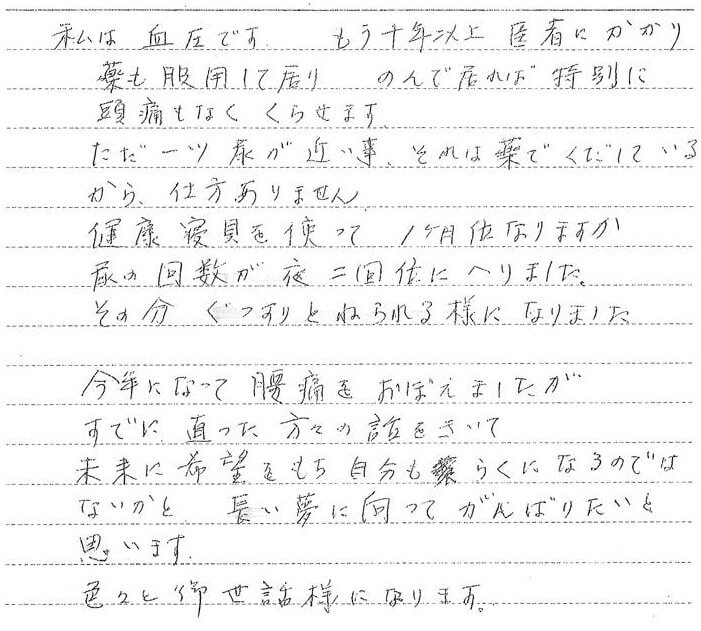 私は 血圧です. もう十年以上 医者にかかり
薬も服用して居り のんで居れば 特別に
頭痛もなく くらせます.
ただ一ツ 尿が 近い事、それは薬で くだしている
から、仕方ありません.
健康 寝具を 使って 1ヶ月位なりますが
尿の回数が 夜 二回位に へりました。
その分 ぐっすりと ねられる様に なりました
今年になって 腰痛を おぼえましたが
すでに 直った 方々の 話をきいて
未来に 希望をもち 自分も らくになるのでは
ないかと、長い夢に向って がんばりたいと
思います.
色々と御世話様になります。